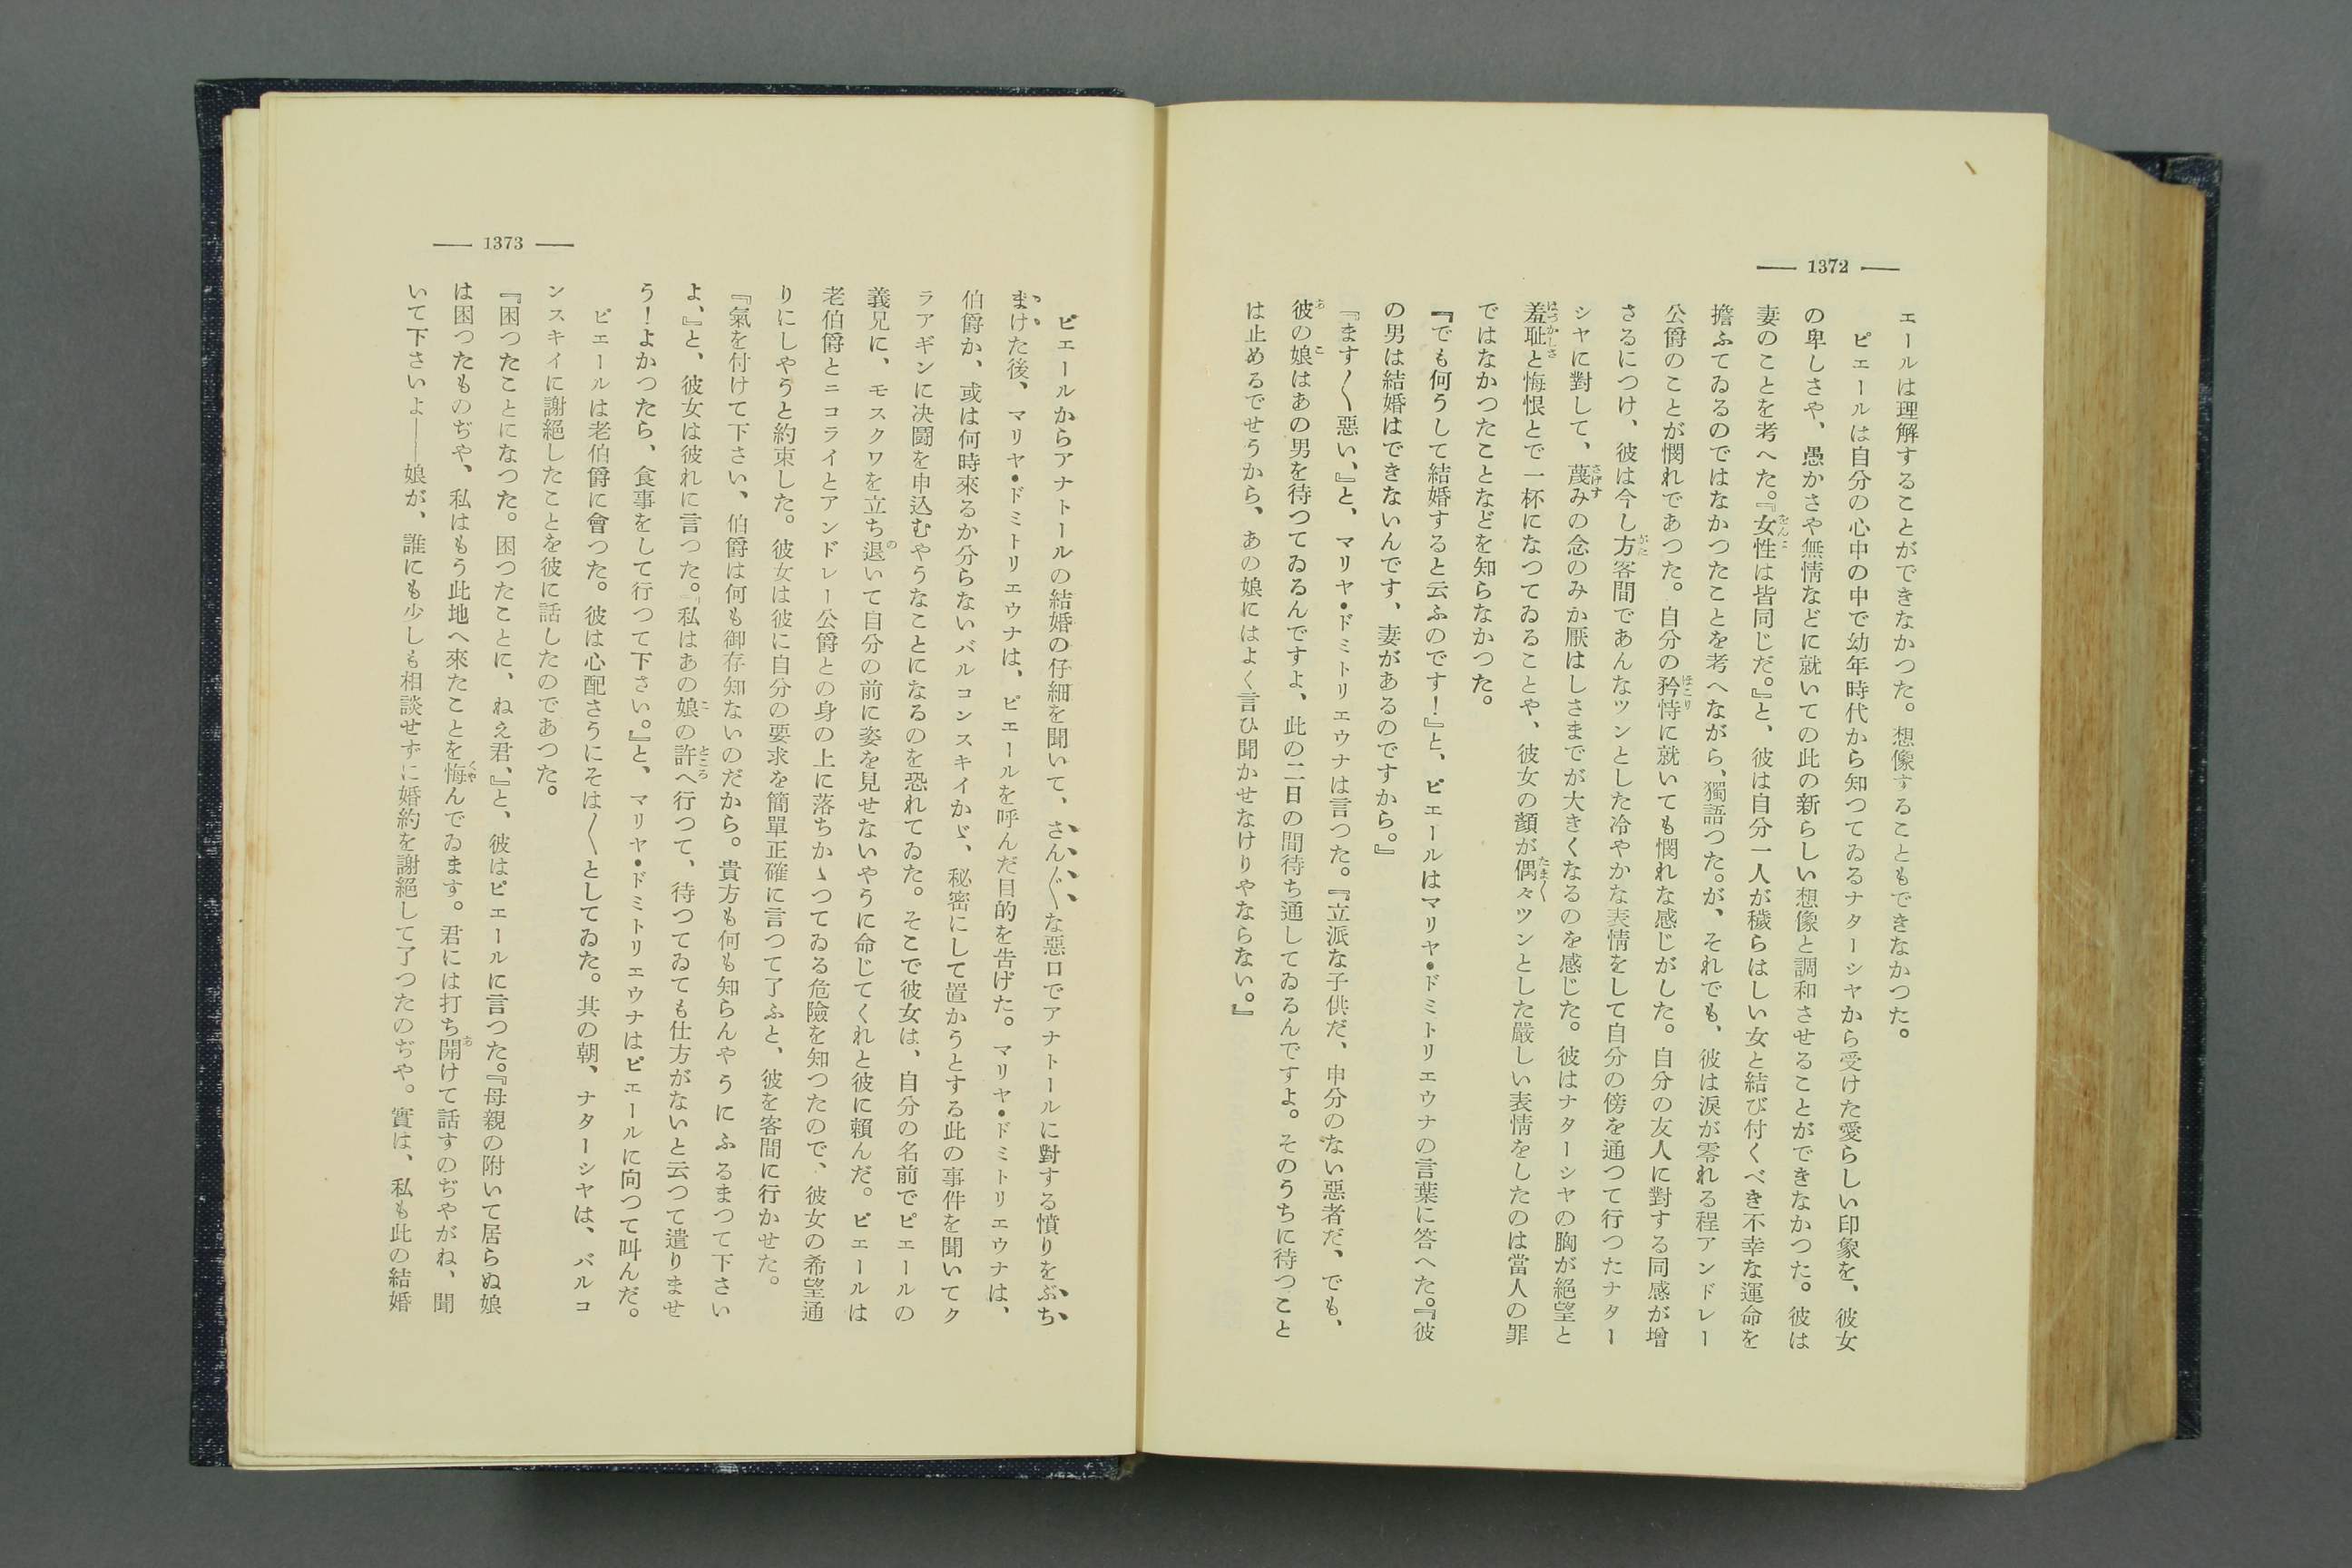 — 1372 —
エールは理解することができなかつた。想像することもできなかつた。
ピエールは自分の心中の中で幼年時代から知つてゐるナターシヤから受けた愛らしい印象を、彼女
の卑しさや、愚かさや無情などに就いての此の新らしい想像と調和させることができなかつた。彼は
妻のことを考へた。『女性は皆同じだ。』と、彼は自分一人が穢らはしい女と結び付くべき不幸な運命を
擔ふてゐるのではなかつたことを考へながら、獨語つた。が、それでも、彼は涙が零れる程アンドレー
公爵のことが憫れであつた。自分の矜恃に就いても憫れな感じがした。自分の友人に對する同感が增
さるにつけ、彼は今し方客間であんなツンとした冷やかな表情をして自分の傍を通つて行つたナター
シヤに對して、蔑みの念のみか厭はしさまでが大きくなるのを感じた。彼はナターシヤの胸が絶望と
羞耻と悔恨とで一杯になつてゐることや、彼女の顏が偶々ツンとした嚴しい表情をしたのは當人の罪
ではなかつたことなどを知らなかつた。
『でも何うして結婚すると云ふのです！』と、ピエールはマリヤ・ドミトリエウナの言葉に答へた。『彼
の男は結婚はできないんです、妻があるのですから。』
『ます〱惡い、』と、マリヤ・ドミトリエウナは言つた。『立派な子供だ、申分のない惡者だ、でも、
彼の娘はあの男を待つてゐるんですよ、此の二日の間待ち通してゐるんですよ。そのうちに待つこと
は止めるでせうから、あの娘にはよく言ひ聞かせなけりやならない。』
— 1373 —
ピエールからアナトールの結婚の仔細を聞いて、さん〲な惡口でアナトールに對する憤りをぶち
まけた後、マリヤ・ドミトリエウナは、ピエールを呼んだ目的を告げた。マリヤ・ドミトリエウナは、
伯爵か、或は何時來るか分らないバルコンスキイかゞ、秘密にして置かうとする此の事件を聞いてク
ラアギンに决闘を申込むやうなことになるのを恐れてゐた。そこで彼女は、自分の名前でピエールの
義兄に、モスクワを立ち退いて自分の前に姿を見せないやうに命じてくれと彼に賴んだ。ピエールは
老伯爵とニコライとアンドレー公爵との身の上に落ちかゝつてゐる危險を知つたので、彼女の希望通
りにしやうと約束した。彼女は彼に自分の要求を簡單正確に言つて了ふと、彼を客間に行かせた。
『氣を付けて下さい、伯爵は何も御存知ないのだから。貴方も何も知らんやうにふるまつて下さい
よ、』と、彼女は彼れに言つた。『私はあの娘の許へ行つて、待つてゐても仕方がないと云つて遣りませ
う！よかつたら、食事をして行つて下さい。』と、マリヤ・ドミトリエウナはピエールに向つて叫んだ。
ピエールは老伯爵に會つた。彼は心配さうにそは〱としてゐた。其の朝、ナターシヤは、バルコ
ンスキイに謝絶したことを彼に話したのであつた。
『困つたことになつた。困つたことに、ねえ君、』と、彼はピエールに言つた。『母親の附いて居らぬ娘
は困つたものぢや、私はもう此地へ來たことを悔んでゐます。君には打ち開けて話すのぢやがね、聞
いて下さいよ――娘が、誰にも少しも相談せずに婚約を謝絶して了つたのぢや。實は、私も此の結婚